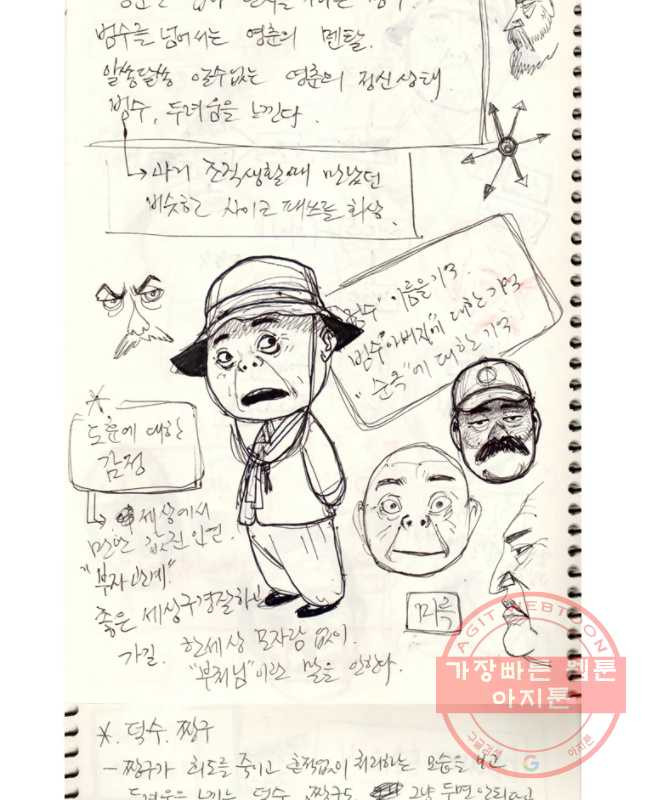 범수를 넘어서는 영춘의 멘탈.
알쏭달쏭 알수없는 영춘의 정신상태
범수, 두려움을 느낀다.
과거 조직생활때 만났던
비슷한 싸이코패쓰를 회상.
"범수" 이름을 기억.
범수"아버지"에 대한 기억
"순옥"에 대한 기억
*.
도훈에 대한
감정
세상에서
만난 값진 인연.
"부자관계"
좋은 세상구경잘하고
가길. 한세상 모자람 없이.
"부처님"이란 말을 안한다.
미륵
AGIT WEBTOON
가장빠른 웹툰
아지툰
구글검색 G 아지툰
*. 덕수. 짱구
- 짱구가 최도를 죽이고 흔적없이 처리하는 모습을 보고
두려움을 느끼는 덕수. 짱구도 그냥 두면 안되고